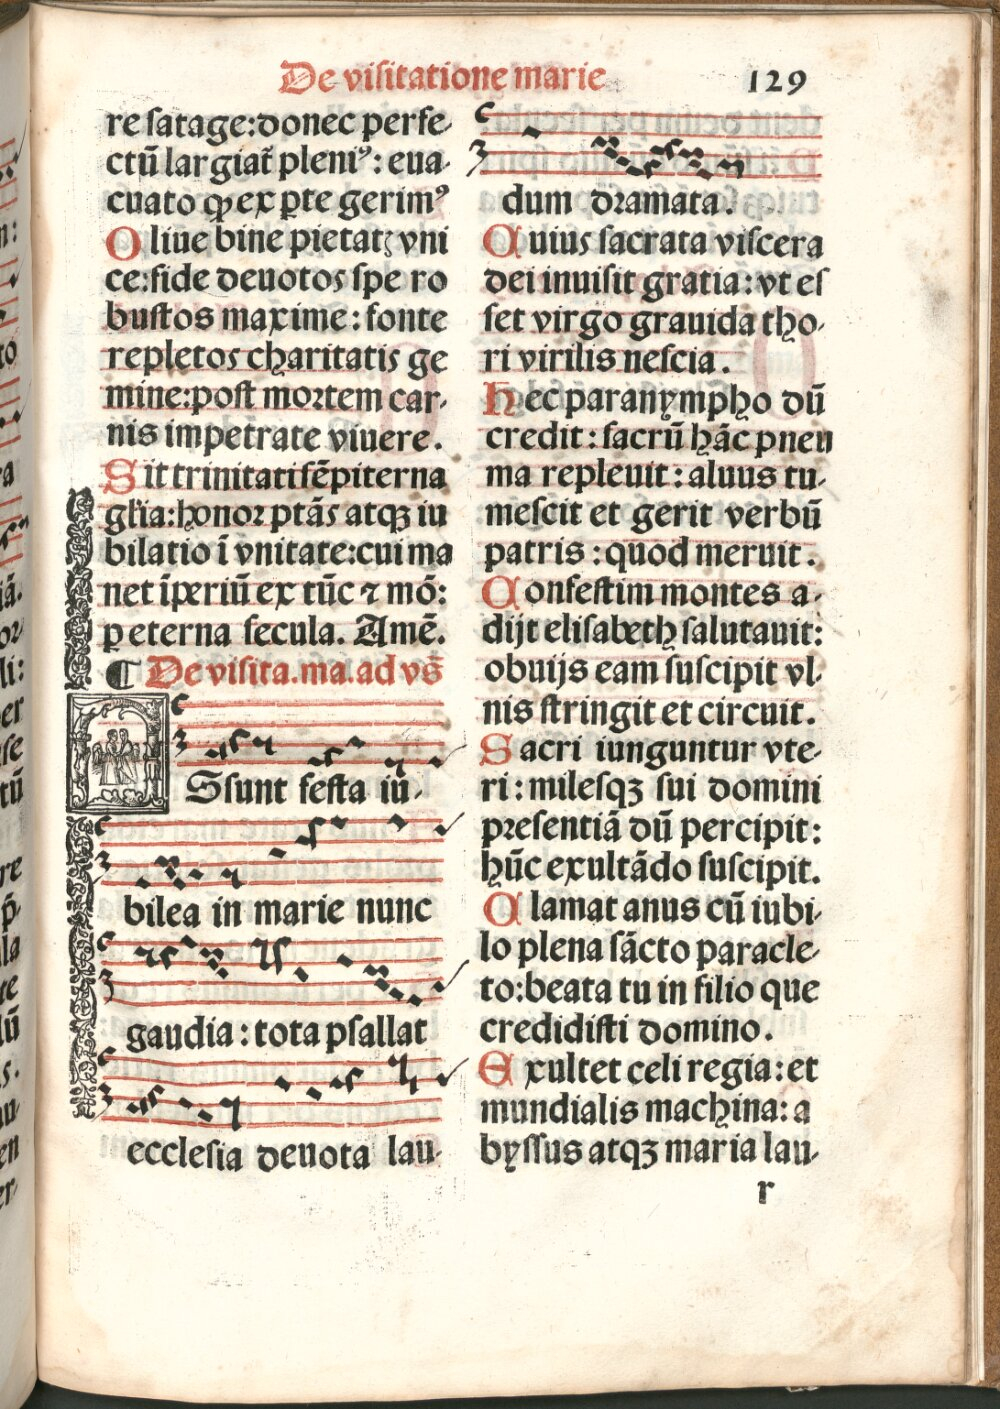 De visitatione marie 129
re satage:donec perfe-
ctū largiat̄ pleniꝰ: eua-
cuato ꝙ ex ꝑte gerimꝰ
Oliue bine pietatꝫ vni
ce:fide deuotos spe ro
bustos maxime: fonte
repletos charitatis ge
mine:post mortem car-
nis impetrate viuere.
Sit trinitati sēpiterna
gl'ia:honor ptās atqꝫ iu
bilatio ī vnitate:cui ma
net īperiū ex tūc ⁊ mō:
ꝑ eterna secula. Amē.
¶ De visita.ma.ad vs̄
Ssunt festa iu-
bilea in marie nunc
gaudia: tota psallat
ecclesia deuota lau-
dum dramata.
Cuius sacrata viscera
dei inuisit gratia: vt es
set virgo grauida tho-
ri virilis nescia.
Hec paranympho dū
credit: sacrū hāc pneu
ma repleuit: aluus tu-
mescit et gerit verbū
patris: quod meruit.
Confestim montes a-
dijt elisabeth salutauit:
obuijs eam suscipit vl-
nis stringit et circuit.
Sacri iunguntur vte-
ri: milesqꝫ sui domini
presentiā dū percipit:
hūc exultādo suscipit.
Clamat anus cū iubi-
lo plena sācto paracle-
to:beata tu in filio que
credidisti domino.
Exultet celi regia: et
mundialis machina: a
byssus atqꝫ maria lau-
r